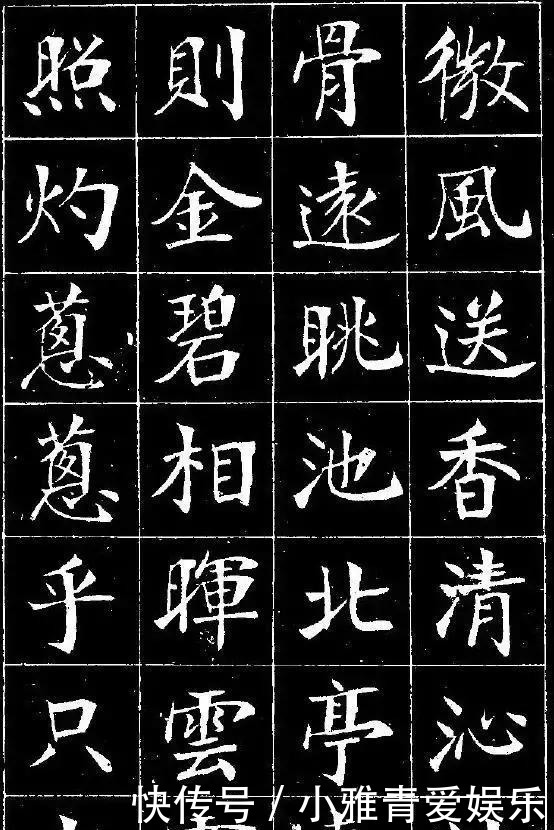 微風送香清沁
骨遠眺池北亭
則金碧相暉雲
照灼蔥蔥乎只
快传号/小雅青爱娱乐